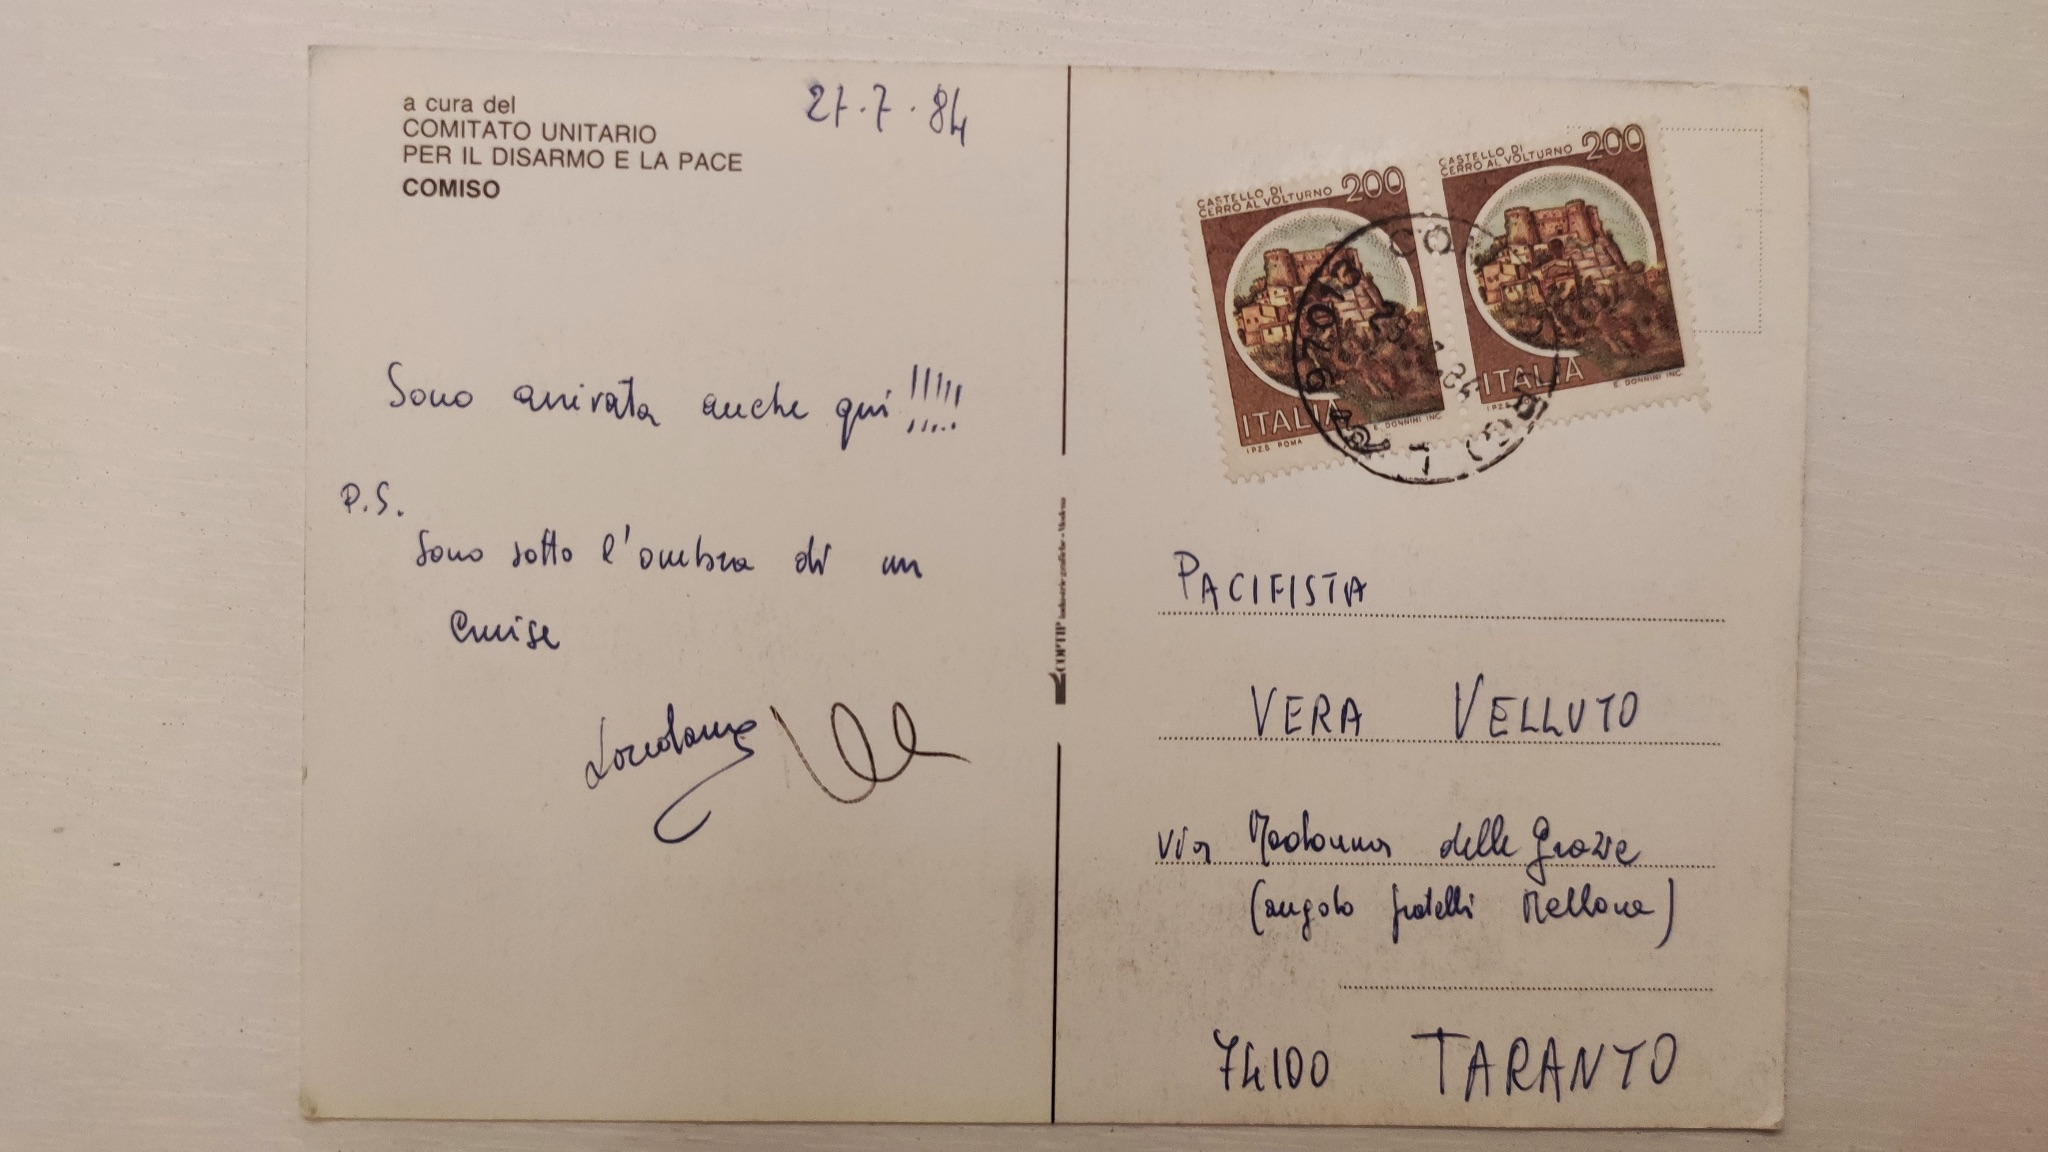 a cura del
COMITATO UNITARIO
PER IL DISARMO E LA PACE
COMISO
27.7.84
Sono arrivata anche qui !!!!!
P.S.
Sono sotto l'ombra di un
Cruise
Loredana
CASTELLO DI
CERRO AL VOLTURNO 200
ITALIA
I.P.Z.S. ROMA E. DONNINI INC.
CASTELLO DI
CERRO AL VOLTURNO 200
ITALIA
I.P.Z.S. E. DONNINI INC.
97013 CO
COPTIP industrie grafiche - Modena
PACIFISTA
VERA VELLUTO
Via Madonna delle Grazie
(angolo fratelli Mellone)
74100 TARANTO